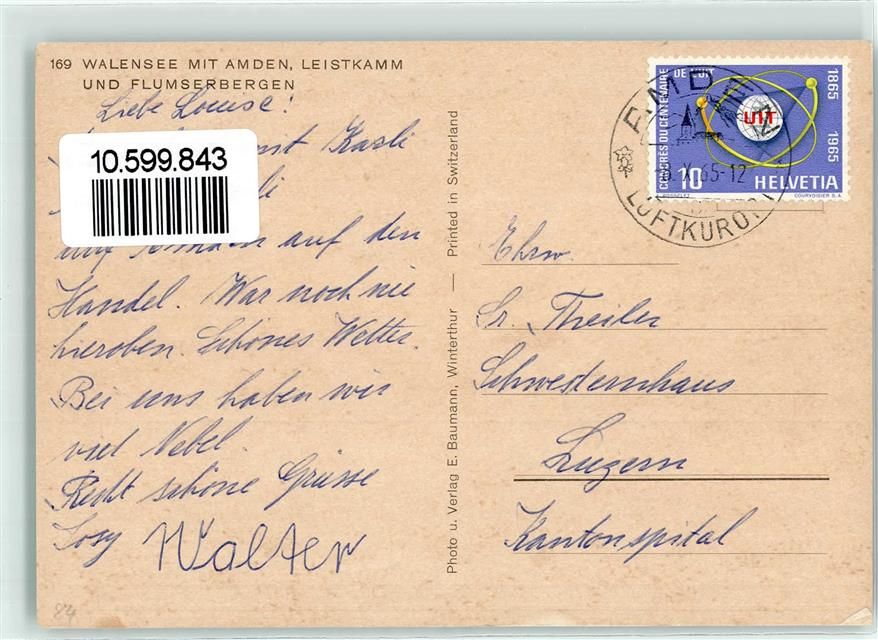 169 WALENSEE MIT AMDEN, LEISTKAMM
UND FLUMSERBERGEN
Liebe Louise!
mit Karli
10.599.843
auf den
Handel. War noch nie
hieroben. Schönes Wetter.
Bei uns haben wir
viel Nebel.
Recht schöne Grüsse
Josy Walter
Photo u. Verlag E. Baumann, Winterthur — Printed in Switzerland
CONGRÈS DU CENTENAIRE
DE L'UIT
1865 1965
UIT
10 HELVETIA
COURVOISIER S.A.
AMDEN
X. 65-12
LUFTKURORT
Ehrw.
Sr. Theiler
Schwesternhaus
Luzern
Kantonspital
84